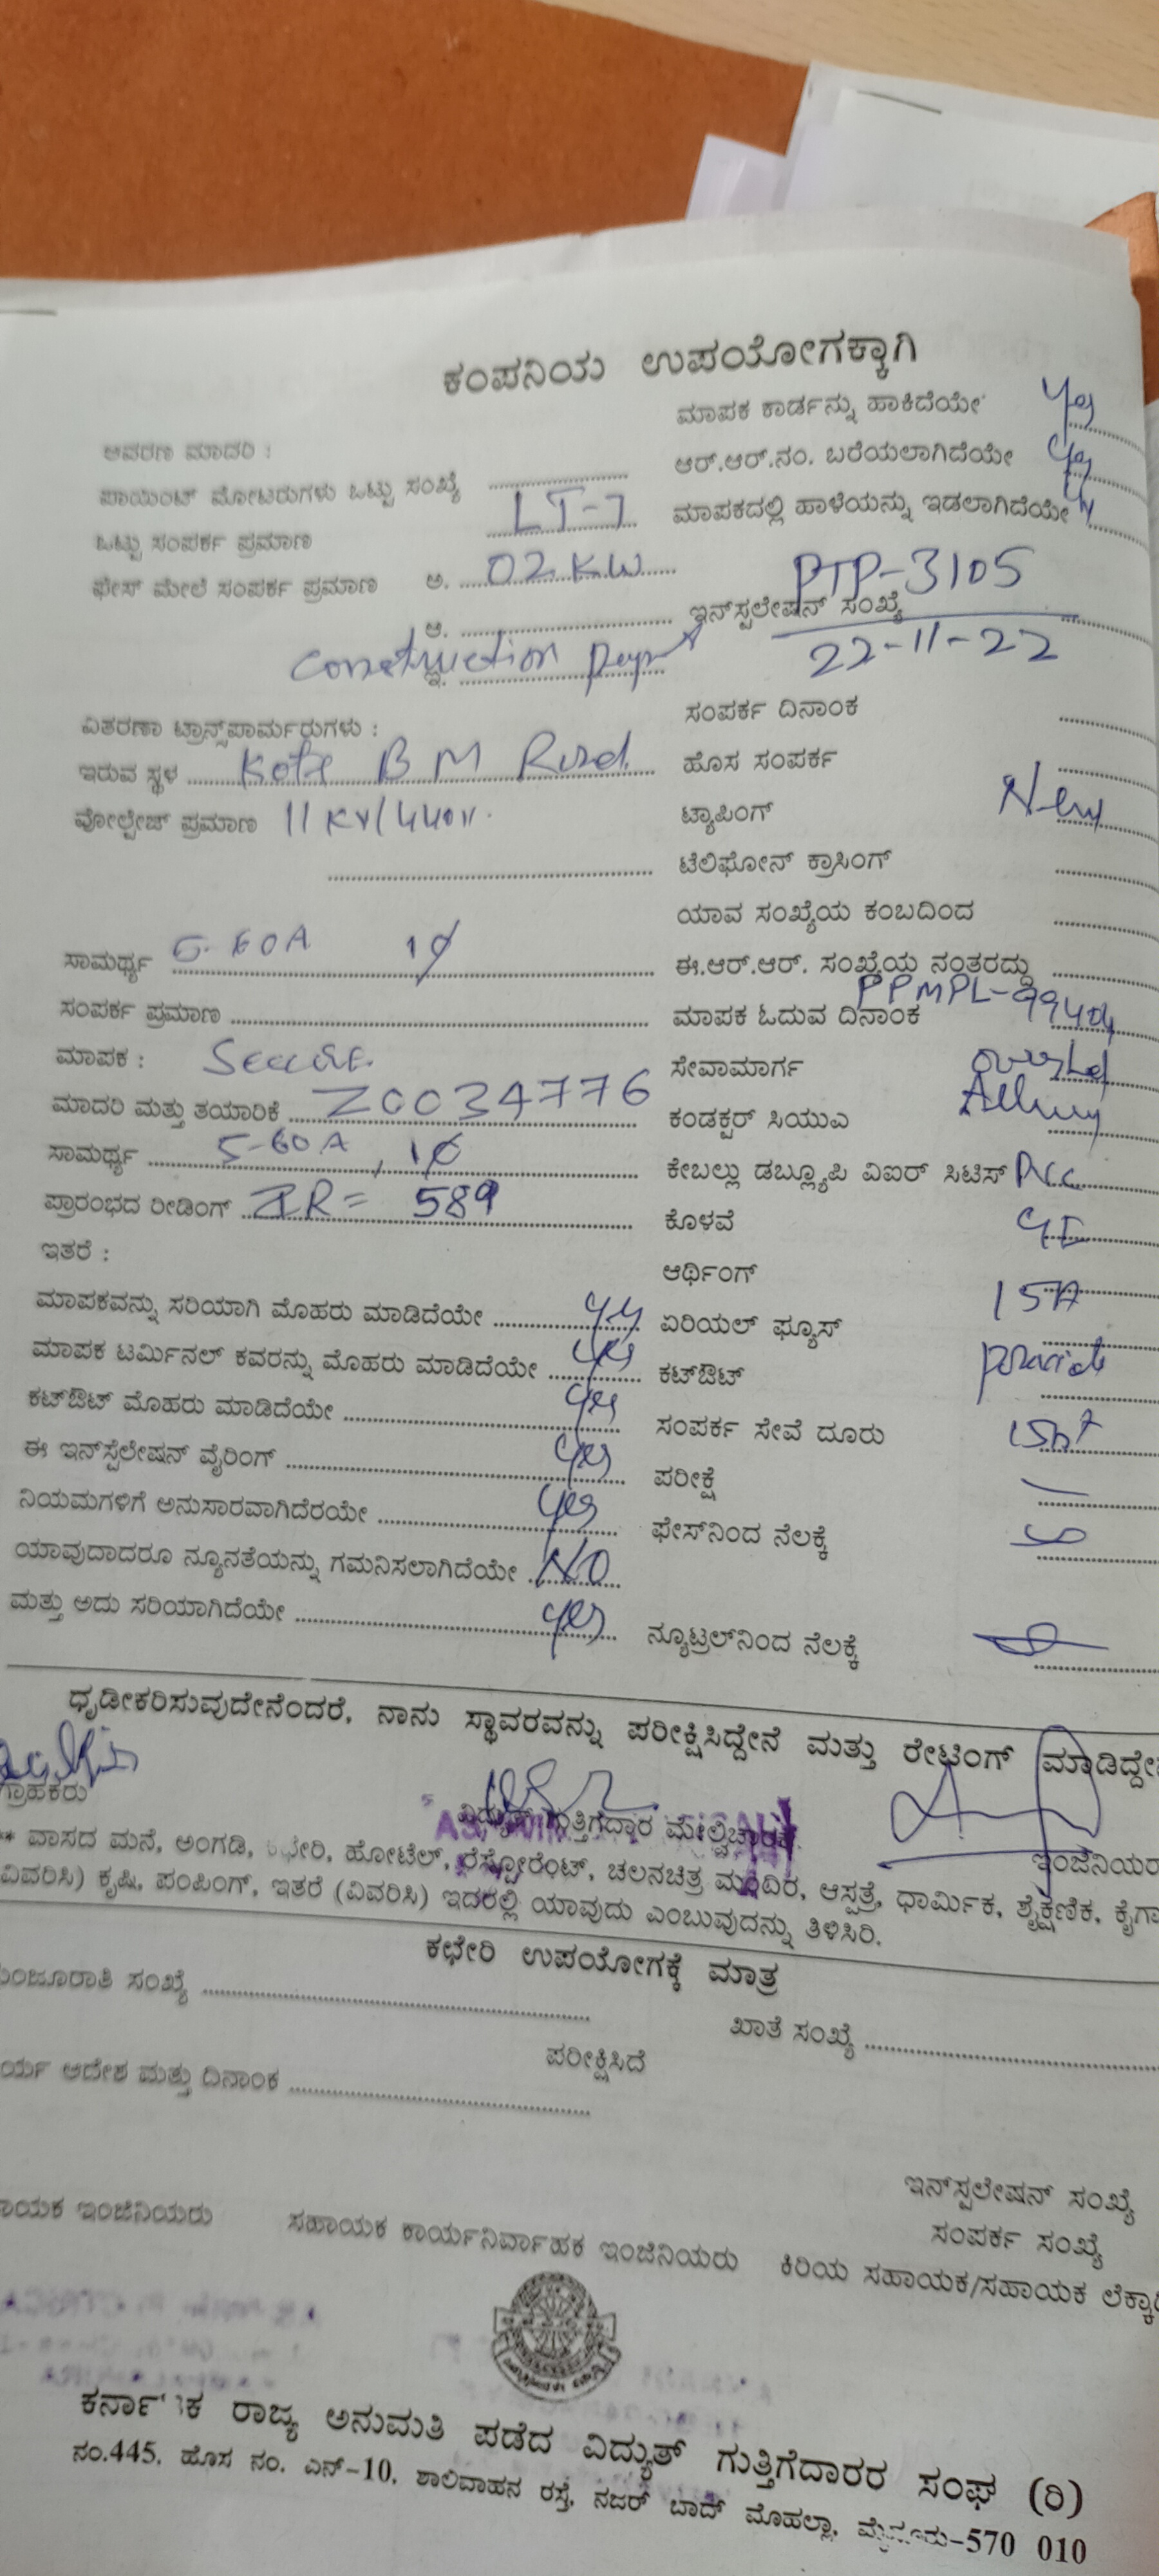 ಕಂಪನಿಯ ಉಪಯೋಗಕ್ಕಾಗಿ
ಆವರಣ ಮಾದರಿ :
ಮಾಪಕ ಕಾರ್ಡನ್ನು ಹಾಕಿದೆಯೇ Yes
ಪಾಯಿಂಟ್ ಮೋಟರುಗಳು ಒಟ್ಟು ಸಂಖ್ಯೆ
ಆರ್.ಆರ್.ನಂ. ಬರೆಯಲಾಗಿದೆಯೇ Yes
ಒಟ್ಟು ಸಂಪರ್ಕ ಪ್ರಮಾಣ LT-7
ಮಾಪಕದಲ್ಲಿ ಹಾಳೆಯನ್ನು ಇಡಲಾಗಿದೆಯೇ
ಫೇಸ್ ಮೇಲೆ ಸಂಪರ್ಕ ಪ್ರಮಾಣ ಅ. 02 KW
PTP-3105
ಆ.
ಇನ್‌ಸ್ಟಲೇಷನ್ ಸಂಖ್ಯೆ
22-11-22
Construction
ಸಂಪರ್ಕ ದಿನಾಂಕ
ವಿತರಣಾ ಟ್ರಾನ್ಸ್‌ಪಾರ್ಮರುಗಳು :
ಹೊಸ ಸಂಪರ್ಕ
ಇರುವ ಸ್ಥಳ Kote B M Road
ಟ್ಯಾಪಿಂಗ್ New
ವೋಲ್ಟೇಜ್ ಪ್ರಮಾಣ 11 KV/440V.
ಟೆಲಿಫೋನ್ ಕ್ರಾಸಿಂಗ್
ಯಾವ ಸಂಖ್ಯೆಯ ಕಂಬದಿಂದ
ಸಾಮರ್ಥ್ಯ 5-60A 1φ
ಈ.ಆರ್.ಆರ್. ಸಂಖ್ಯೆಯ ನಂತರದ್ದು
PPMPL-99404
ಸಂಪರ್ಕ ಪ್ರಮಾಣ
ಮಾಪಕ ಓದುವ ದಿನಾಂಕ
ಮಾಪಕ : Secure
ಸೇವಾಮಾರ್ಗ
ಮಾದರಿ ಮತ್ತು ತಯಾರಿಕೆ Z0034776
ಕಂಡಕ್ಟರ್ ಸಿಯುಎ
ಸಾಮರ್ಥ್ಯ 5-60A, 1φ
ಕೇಬಲ್ಲು ಡಬ್ಲ್ಯೂಪಿ ವಿಐಆರ್ ಸಿಟಿಸ್
ಪ್ರಾರಂಭದ ರೀಡಿಂಗ್ IR= 589
ಕೊಳವೆ
ಇತರೆ :
ಆರ್ಥಿಂಗ್
ಮಾಪಕವನ್ನು ಸರಿಯಾಗಿ ಮೊಹರು ಮಾಡಿದೆಯೇ yes
ಏರಿಯಲ್ ಫ್ಯೂಸ್ 15A
ಮಾಪಕ ಟರ್ಮಿನಲ್ ಕವರನ್ನು ಮೊಹರು ಮಾಡಿದೆಯೇ yes
ಕಟ್‌ಔಟ್
ಕಟ್‌ಔಟ್ ಮೊಹರು ಮಾಡಿದೆಯೇ yes
ಸಂಪರ್ಕ ಸೇವೆ ದೂರು
ಈ ಇನ್‌ಸ್ಟೆಲೇಷನ್ ವೈರಿಂಗ್ yes
ಪರೀಕ್ಷೆ
ನಿಯಮಗಳಿಗೆ ಅನುಸಾರವಾಗಿದೆರಯೇ yes
ಫೇಸ್‌ನಿಂದ ನೆಲಕ್ಕೆ
ಯಾವುದಾದರೂ ನ್ಯೂನತೆಯನ್ನು ಗಮನಿಸಲಾಗಿದೆಯೇ NO
ಮತ್ತು ಅದು ಸರಿಯಾಗಿದೆಯೇ yes
ನ್ಯೂಟ್ರಲ್‌ನಿಂದ ನೆಲಕ್ಕೆ
ಧೃಡೀಕರಿಸುವುದೇನೆಂದರೆ, ನಾನು ಸ್ಥಾವರವನ್ನು ಪರೀಕ್ಷಿಸಿದ್ದೇನೆ ಮತ್ತು ರೇಟಿಂಗ್ ಮಾಡಿದ್ದೇನೆ
ಗ್ರಾಹಕರು
ವಿದ್ಯುತ್ ಗುತ್ತಿಗೆದಾರ ಮೇಲ್ವಿಚಾರಕ
ಇಂಜಿನಿಯರ
** ವಾಸದ ಮನೆ, ಅಂಗಡಿ, ಕಛೇರಿ, ಹೋಟೆಲ್, ರೆಸ್ಟೋರೆಂಟ್, ಚಲನಚಿತ್ರ ಮಂದಿರ, ಆಸ್ಪತ್ರೆ, ಧಾರ್ಮಿಕ, ಶೈಕ್ಷಣಿಕ, ಕೈಗಾ
ವಿವರಿಸಿ) ಕೃಷಿ, ಪಂಪಿಂಗ್, ಇತರೆ (ವಿವರಿಸಿ) ಇದರಲ್ಲಿ ಯಾವುದು ಎಂಬುವುದನ್ನು ತಿಳಿಸಿರಿ.
ಕಛೇರಿ ಉಪಯೋಗಕ್ಕೆ ಮಾತ್ರ
ಮಂಜೂರಾತಿ ಸಂಖ್ಯೆ
ಖಾತೆ ಸಂಖ್ಯೆ
ಪರೀಕ್ಷಿಸಿದೆ
ರ್ಯ ಆದೇಶ ಮತ್ತು ದಿನಾಂಕ
ಇನ್‌ಸ್ಟಲೇಷನ್ ಸಂಖ್ಯೆ
ಸಂಪರ್ಕ ಸಂಖ್ಯೆ
ಾಯಕ ಇಂಜಿನಿಯರು ಸಹಾಯಕ ಕಾರ್ಯನಿರ್ವಾಹಕ ಇಂಜಿನಿಯರು ಕಿರಿಯ ಸಹಾಯಕ/ಸಹಾಯಕ ಲೆಕ್ಕಾಧಿ
ಕರ್ನಾಟಕ ರಾಜ್ಯ ಅನುಮತಿ ಪಡೆದ ವಿದ್ಯುತ್ ಗುತ್ತಿಗೆದಾರರ ಸಂಘ (ರಿ)
ನಂ.445, ಹೊಸ ನಂ. ಎನ್-10, ಶಾಲಿವಾಹನ ರಸ್ತೆ, ನಜರ್ ಬಾದ್ ಮೊಹಲ್ಲಾ, ಮೈಸೂರು-570 010